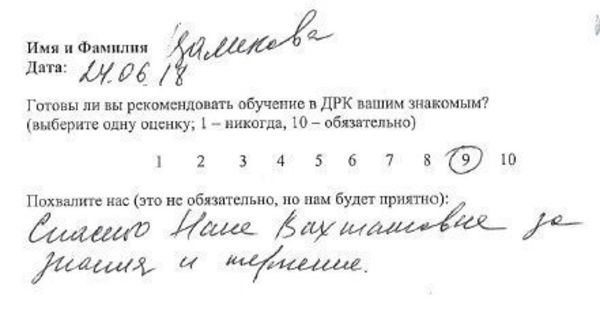 Имя и Фамилия Цаликова
Дата: 24.06.18
Готовы ли вы рекомендовать обучение в ДРК вашим знакомым?
(выберите одну оценку; 1 – никогда, 10 – обязательно)
1 2 3 4 5 6 7 8 9 10
Похвалите нас (это не обязательно, но нам будет приятно):
Спасибо Нане Вахтанговне за
знания и терпение.